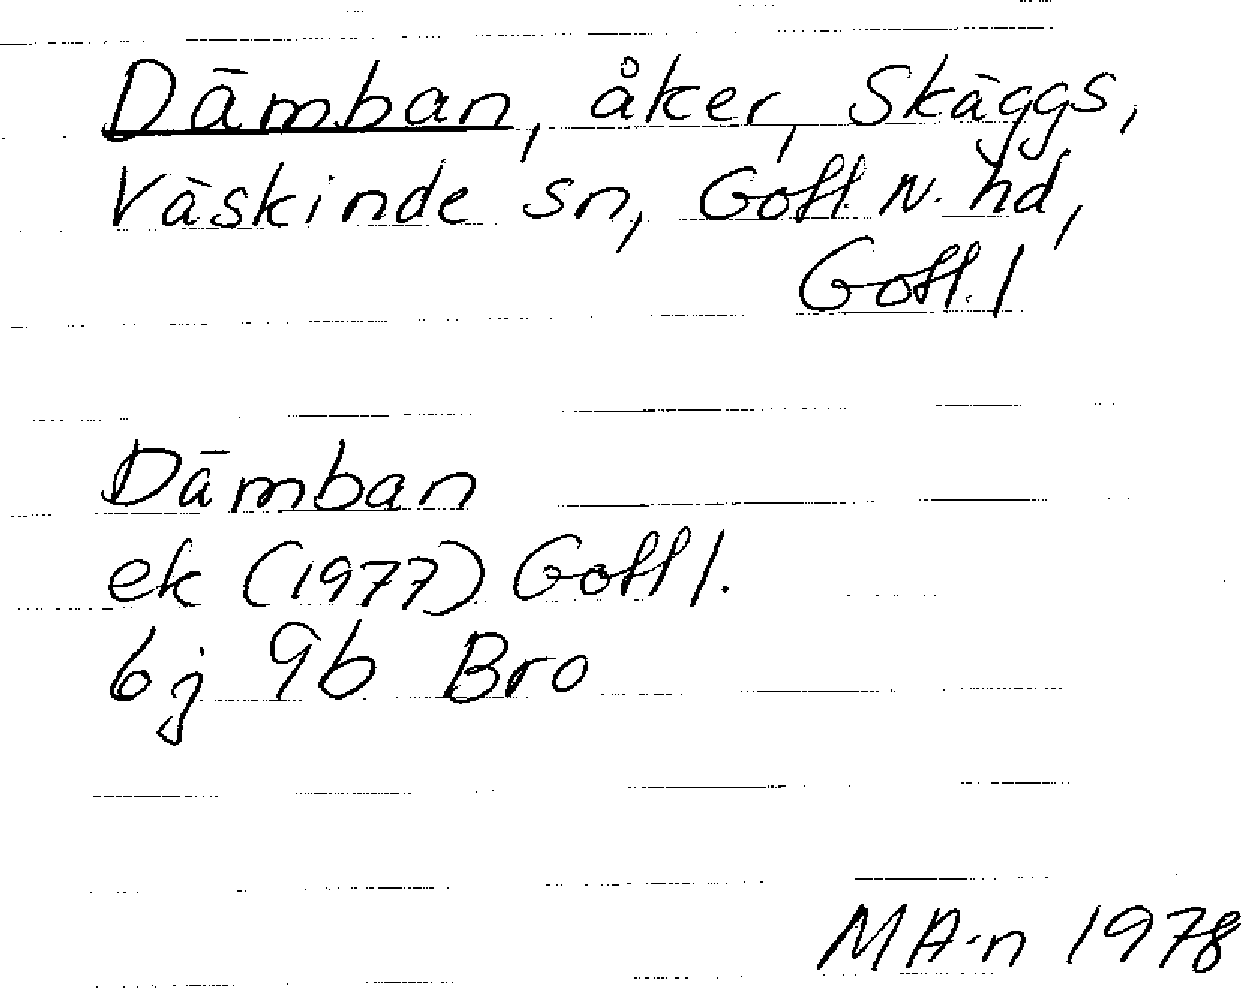 Dämban, åker, Skäggs,
Väskinde sn, Gotl. N. hd,
Gotl. l
Dämban
ek (1977) Gotl l.
6j 9b Bro
MA-n 1978